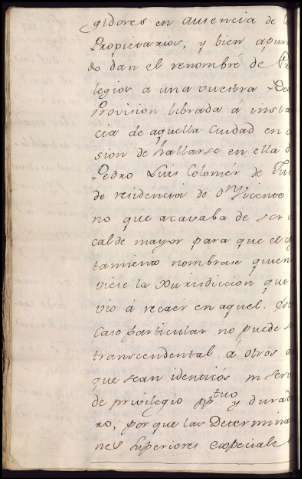 gidores en ausencia de l
Propietarios, y bien apun
do dan el renombre de P
legios a una vuestra
Provision librada á insta
cia de aquella Ciudad en
sion de hallarse en ella
Pedro Luis Colomér de
de residencia de Dn Vicente
no que acavaba de ser
calde mayor para que el
tamiento nombrase quien
viese la Jurisdiccion que
vió á recaer en aquel.
Caso particular no puede s
transcendental a otros a
que sean identicos ni ser
de privilegio ptuo y durad
ro, por que las Determina
nes superiores especiale